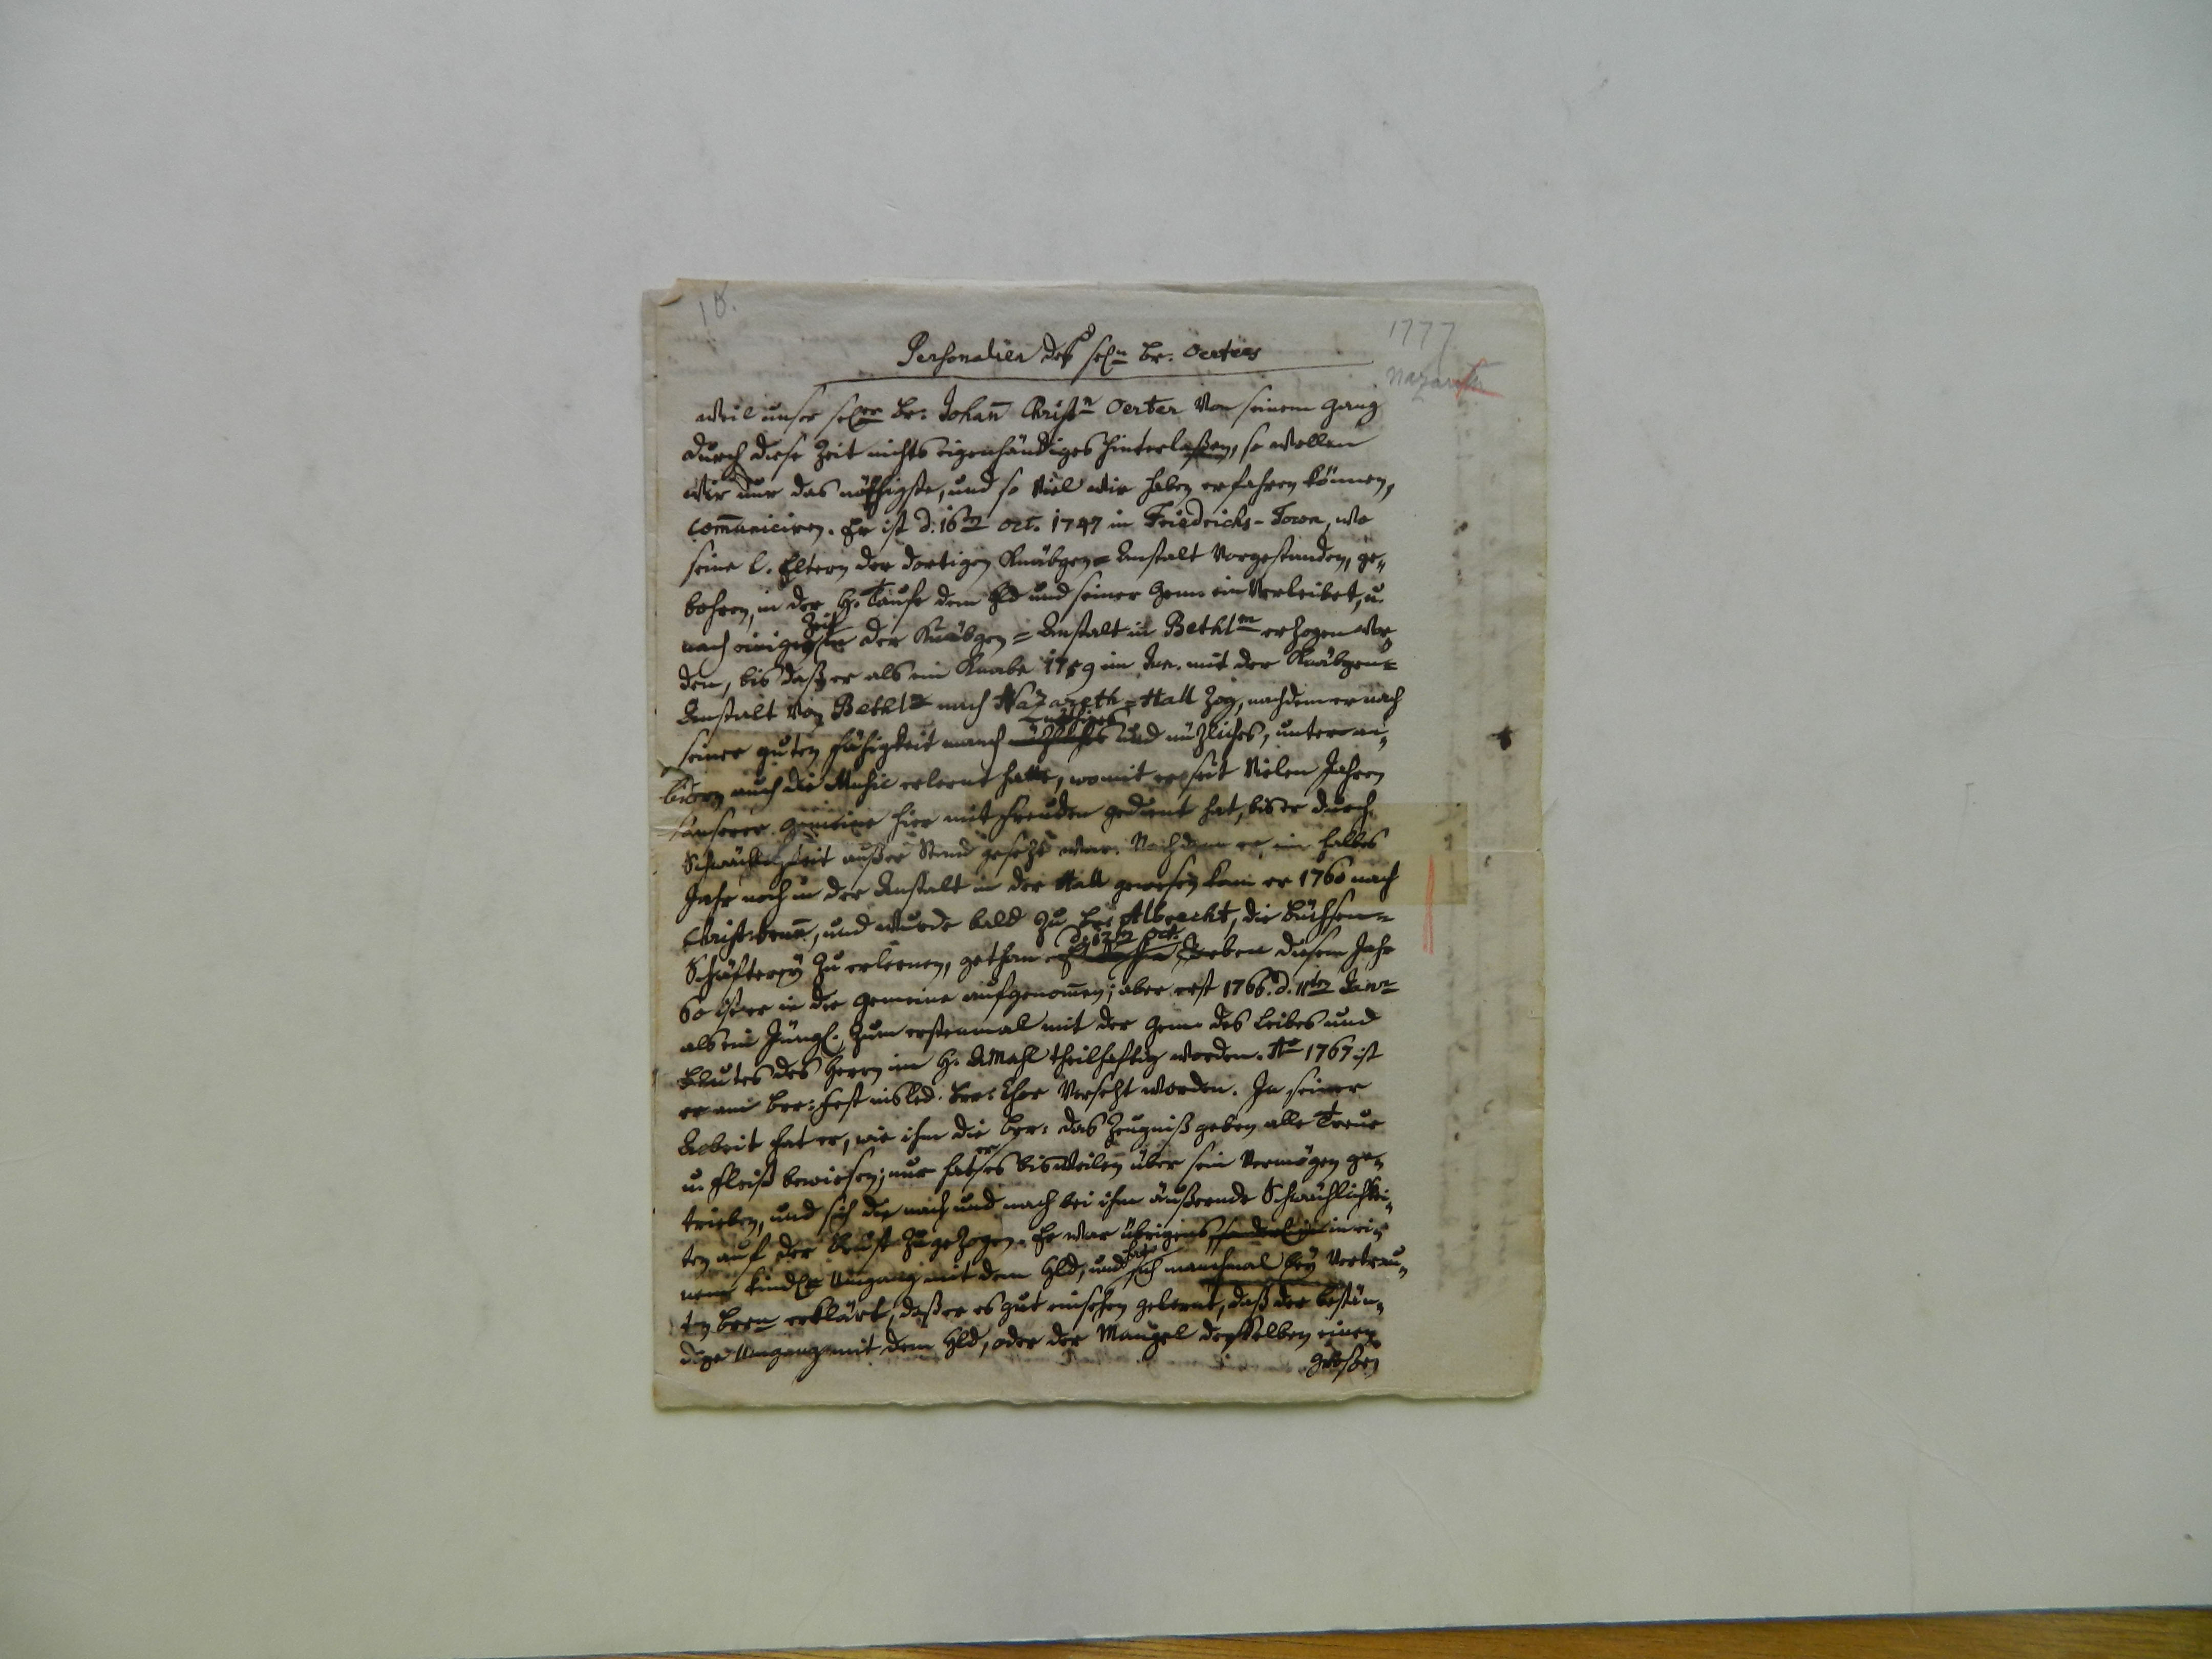 18.
1777
Nazareth
Personalien des sel.n Br. Oerters
Weil unser sel.er Br. Johañ Christn Oerter von seinem Gang
durch diese Zeit nichts eigenhändiges hinterlaßen, so wollen
wir nur das nöthigste, und so viel wir haben erfahren können,
com̄uniciren. Er ist d. 16ten Oct. 1747 in Friedrichs-Town, wo
seine l. Eltern der dortigen Knäbgen=Anstalt vorgestanden, ge„
bohren, in der H. Taufe dem Hld und seiner Gem. einverleibet, u.
nach einiger Zeit in der Knäbgen=Anstalt in Bethlm erzogen wor„
den, bis daß er als ein Knabe 1759 im Jun. mit der Knäbgen=
Anstalt von Bethlm nach Nazareth=Hall zog, nachdem er nach
seiner guten Fähigkeit manch nöthiges und nüzliches, unter an„
dern auch die Music erlernt hatte, womit er seit vielen Jahren
unserer Gemeine hier mit Freuden gedient hat, bis er durch
Schwächlichkeit außer Stand gesezt war. Nachdem er ein halbes
Jahr noch in der Anstalt in der Hall gewesen kam er 1760 nach
Christbrunn, und wurde bald zu Br. Albrecht, die Büchsen=
Schäfterey zu erlernen, gethan. d. 12ten Oct. eben diesem Jahr
60 ist er in die Gemeine aufgenom̄en; aber erst 1766. d. 11ten Janr
als ein Jüngl. zum erstenmal mit der Gem. des Leibes und
Blutes des Herrn im H. AMahl theilhaftig worden. Ao 1767 ist
er am Brr. Fest ins led. Brr. Chor versezt worden. In seiner
Arbeit hat er, wie ihm die Brr. das Zeugniß geben alle Treue
u. Fleiß bewiesen; nur hat er es bisweilen über sein Vermögen ge„
trieben, und sich die nach und nach bei ihm äußernde Schwächlichkei„
ten auf der Brust zugezogen. Er war übrigens in ei„
nem kindl.n Umgang mit dem Hld, und hat sich manchmal bey vertrau„
ten Brrn erklärt, daß er es gut einsehen gelernt, daß der bestän„
dige Umgang mit dem Hld, oder der Mangel desselben einen
großen